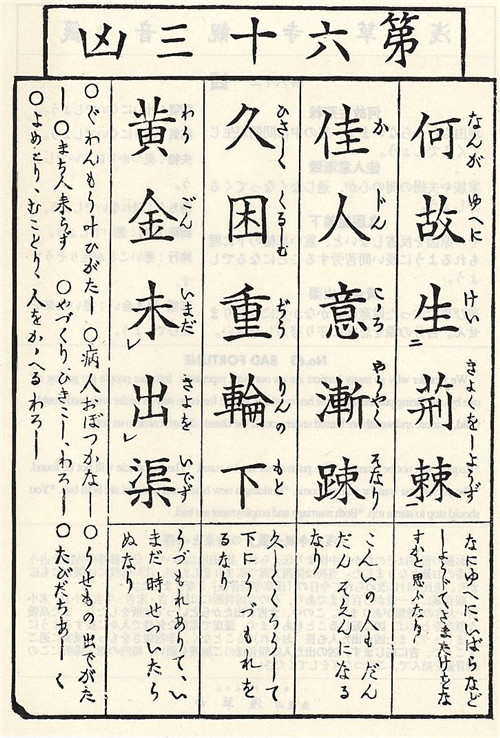 第六十三凶
何故生荊棘
なんがゆへにけいきょくをしょうず
なにゆへに、いばらなど
佳人意漸疎
かじんこゝろややくそなり
こんいの人もだん
だんそゑんになる
なり
久困重輪下
ひさしくくるしむぢうりんのもと
久しくくろうして
下にうづもれゐ
るなり
黄金未出渠
わうごんいまだきよをいでず
うづもれありて、い
まだ時せついたら
ぬなり
〇ぐわんもう叶ひがたし〇病人おぼつかなし〇うせもの出でがた
し〇まち人来らず〇やづくりひきこし、わろし〇たびだちあしく
〇よめとり、むことり、人をかゝへるわろし